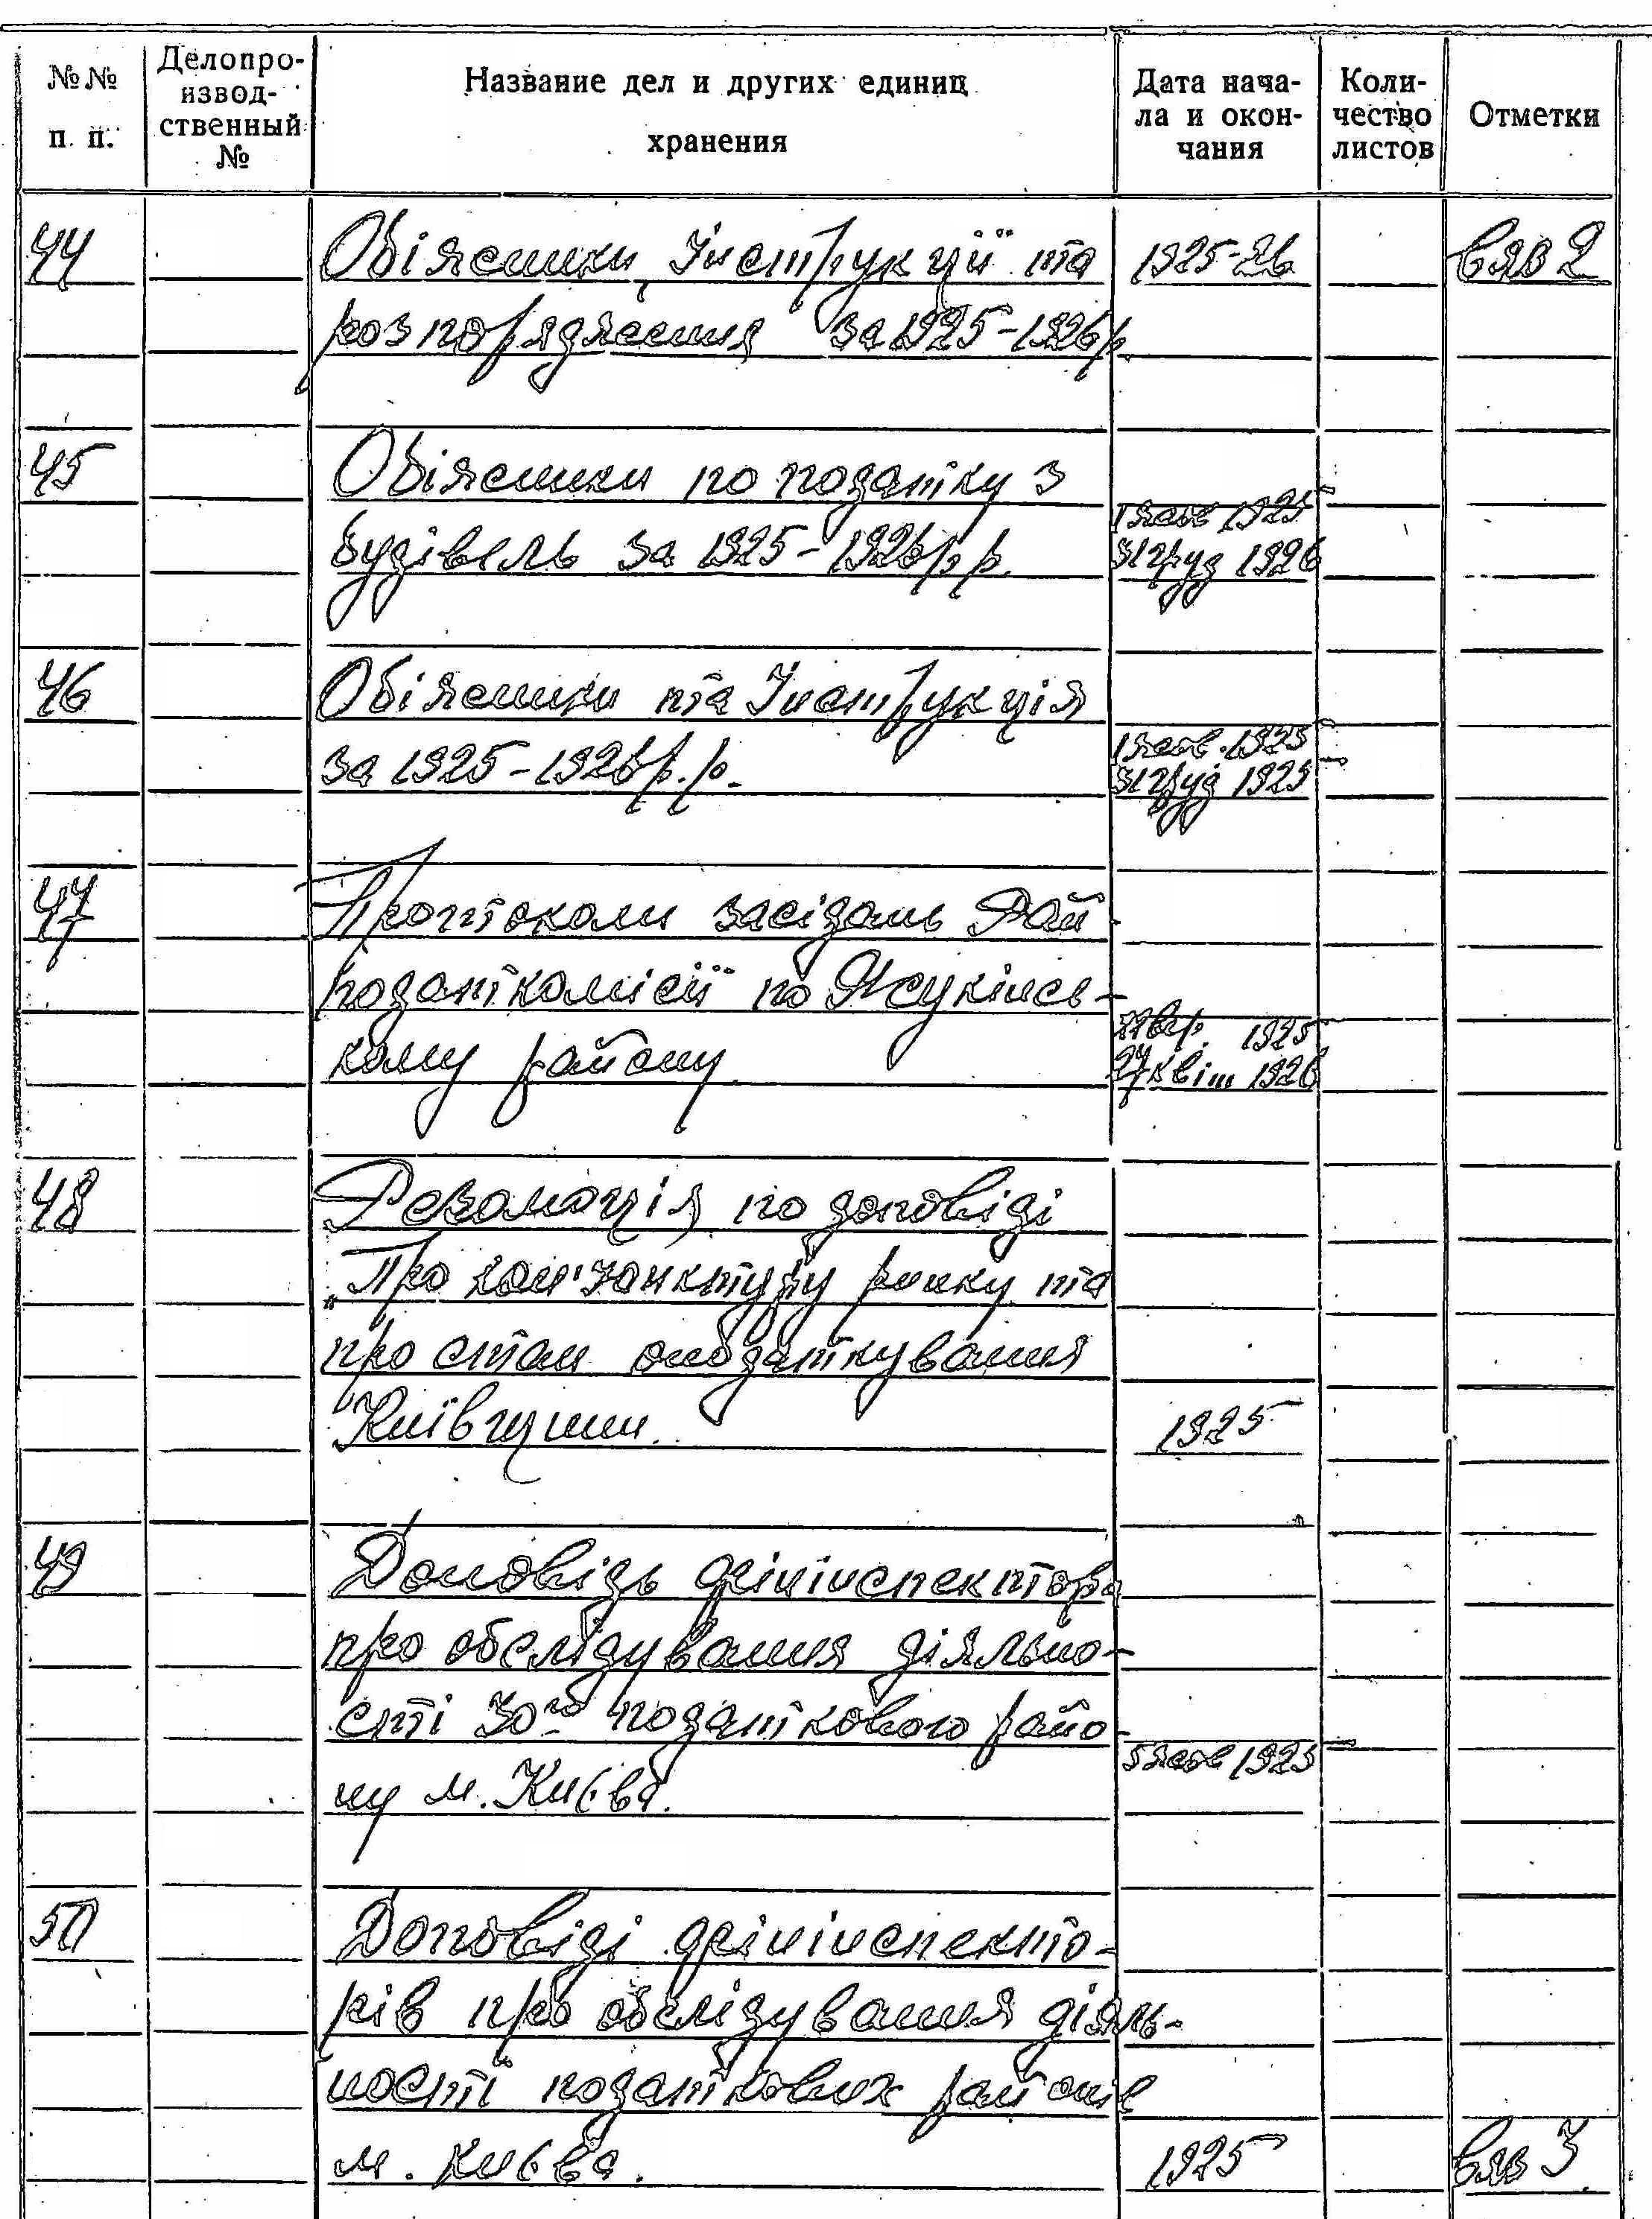 №№ п. п.
Делопро-
извод-
ственный
№
Название дел и других единиц
хранения
Дата нача-
ла и окон-
чания
Коли-
чество
листов
Отметки
44 Обіжники, Інструкції та 1925-26 вяз 2
розпорядження за 1925-1926р.
45 Обіжники по податку з
1 жовт 1925
будівель за 1925-1926р.р.
31 груд 1926
46 Обіжники та Інструкція
1 жовт. 1925
за 1925-1926р.р.
31 груд 1925
47 Протоколи засідань Рай
податкомісії по
1925
кому району
27 квіт 1926
48 Резолюція по доповіді
"Про кон'юнктуру ринку та
про стан оподаткування
Київщини. 1925
49 Доповідь фінінспектора
про обслідування діяльно-
сті 30го податкового райо-
5 жовт 1925
ну м. Києва.
50 Доповіді фінінспекто-
рів про обслідування діяль-
ності податкових районів
м. Києва. 1925 вяз 3